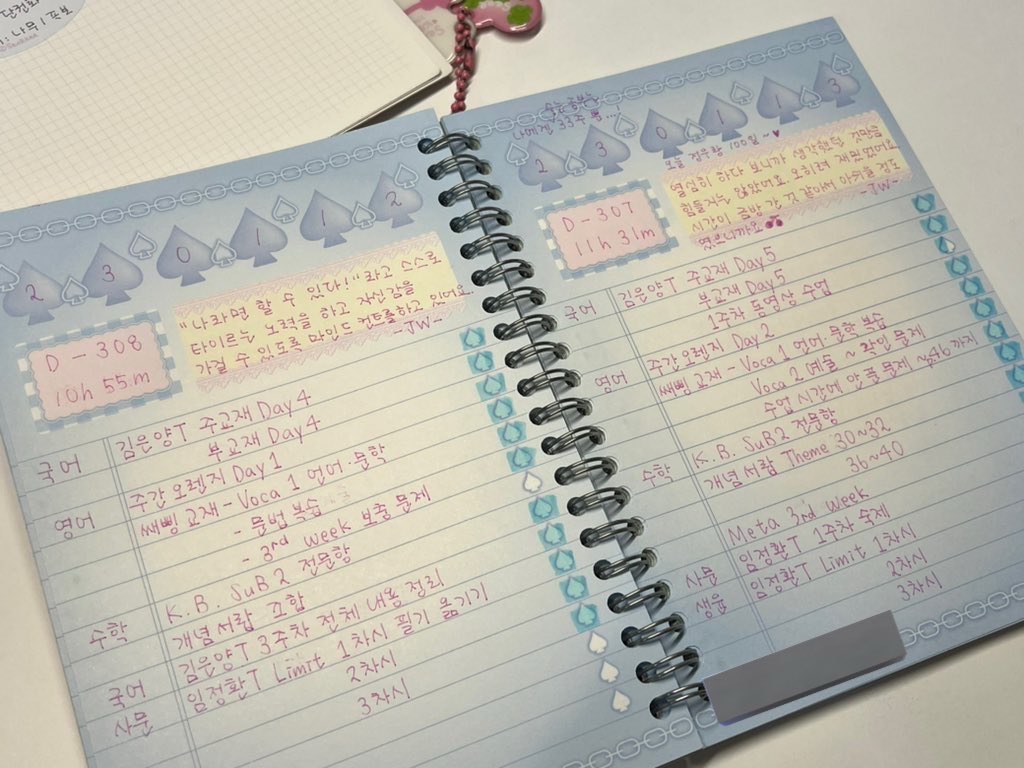 단권화
나무 / 포보
2 3 0 1 1 2
D - 308
10h 55m
"나라면 할 수 있다!" 라고 스스로
타이르는 노력을 하고 자신감을
가질 수 있도록 마인드 컨트롤하고 있어요.
-JW-
국어 김은양T 주교재 Day4
부교재 Day4
영어 주간 오렌지 Day1
쌔삥 교재 - Voca 1 언어·문학
- 문법 복습
- 3rd week 보충 문제
수학 K.B. SuB2 전문항
개념서랍 조합
국어 김은양T 3주차 전체 내용 정리
사문 임정환T Limit 1차시 필기 옮기기
2차시
3차시
수능 증발
나에겐 33주 뿐...!
2 3 0 1 1 3
오늘 정우랑 100일~♥
D - 307
11h 31m
열심히 하다 보니까 생각했던 것만큼
힘들지는 않았어요. 오히려 재밌었어요.
시간이 금방 간 것 같아서 아쉬울 정도
였으니까요
-JW-
국어 김은양T 주교재 Day5
부교재 Day5
1주차 동영상 수업
영어 주간 오렌지 Day2
쌔삥 교재 - Voca 1 언어·문학 복습
Voca 2 예술 ~ 확인 문제
수업 시간에 안 푼 문제 ~46까지
수학 K.B. SuB2 전문항
개념서랍 Theme 30~32
36~40
사문 Meta 3rd Week
임정환T 1주차 숙제
생윤 임정환T Limit 1차시
2차시
3차시